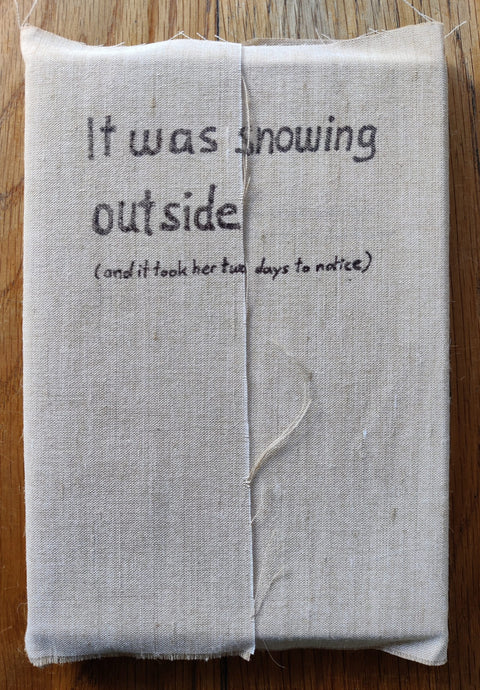 It was snowing
outside
(and it took her two days to notice)